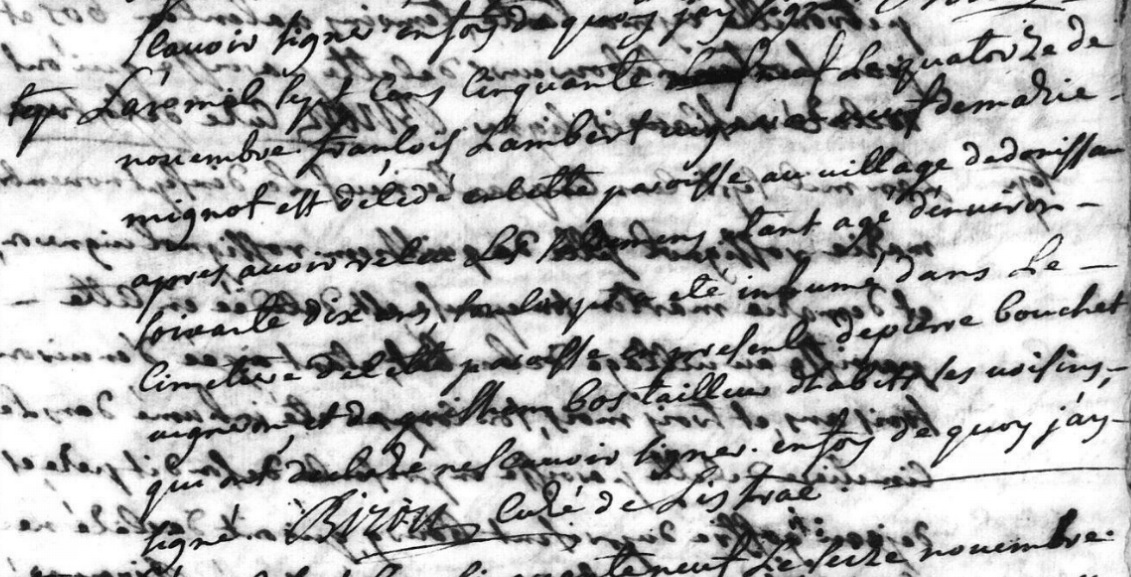 scavoir signer en foy de quoy jay signé
Lan mil sept cens cinquante neuf Le quatorze de
novembre francois Lambert vigneron veuf de marie
mignot est décédé en cette paroisse au village de donissan
apres avoir recu Les sacremens etant agé denviron
soixante dix ans, son corps a eté inhumé dans Le
Cimetiere de cette paroisse en presence de pierre bouchet
vigneron et de guilhem bos tailleur dhabits ses voisins
qui ont declaré ne scavoir signer. en foy de quoy jay
signé Biron curé de Listrac
neuf Le seize novembre